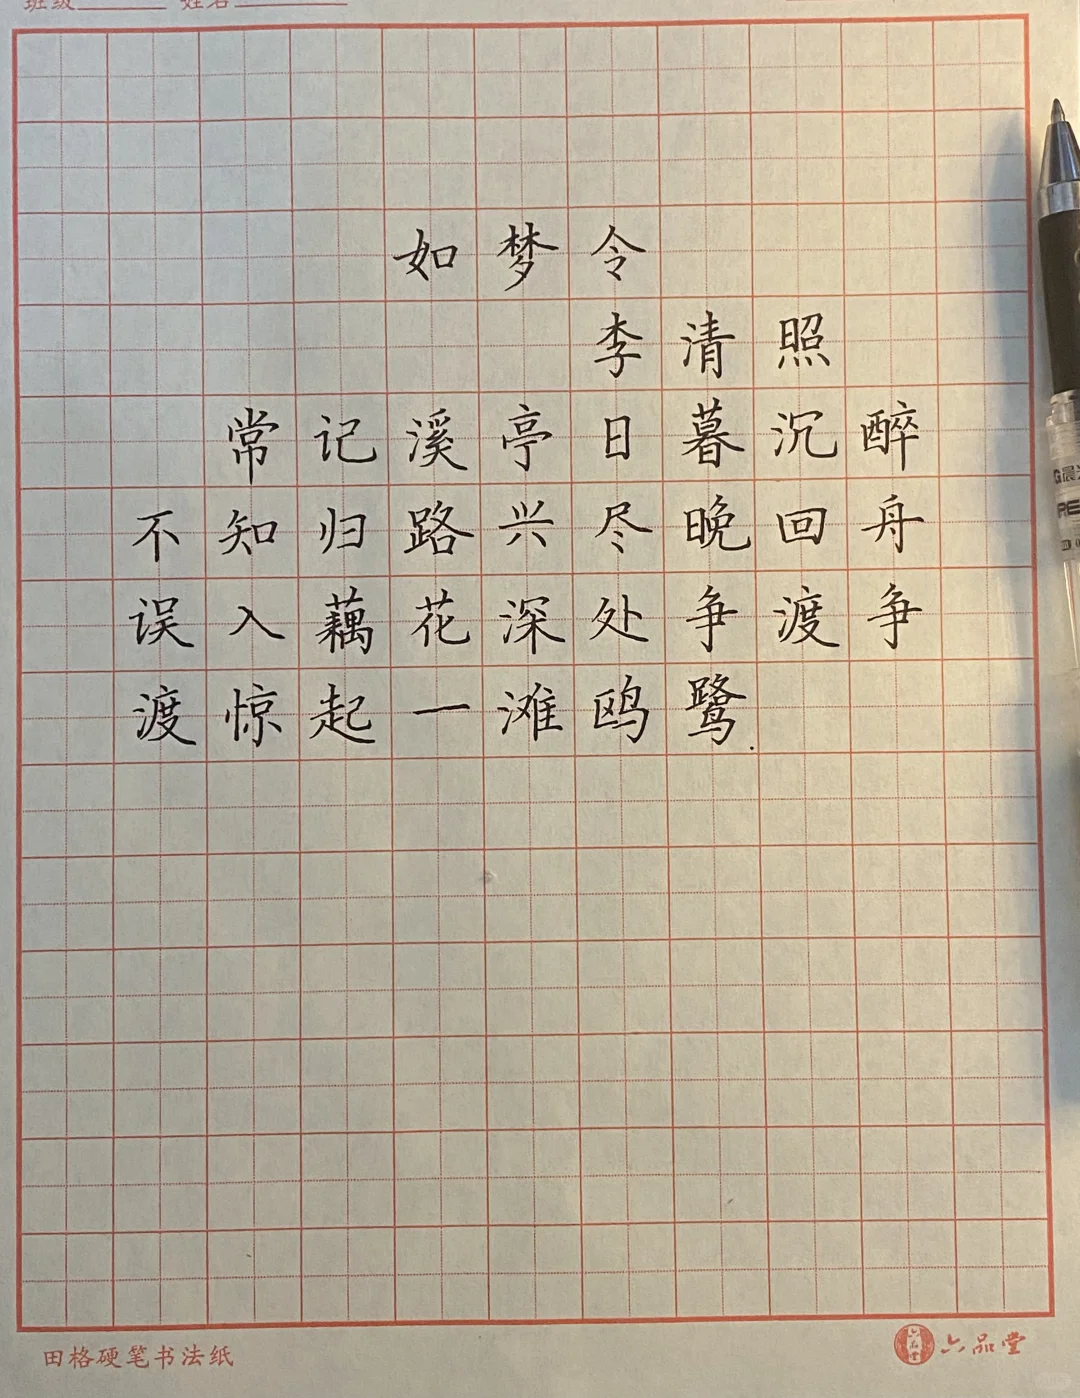 班级 姓名
如梦令
李清照
常记溪亭日暮沉醉
不知归路兴尽晚回舟
误入藕花深处争渡争
渡惊起一滩鸥鹭.
田格硬笔书法纸
六品堂
六品堂